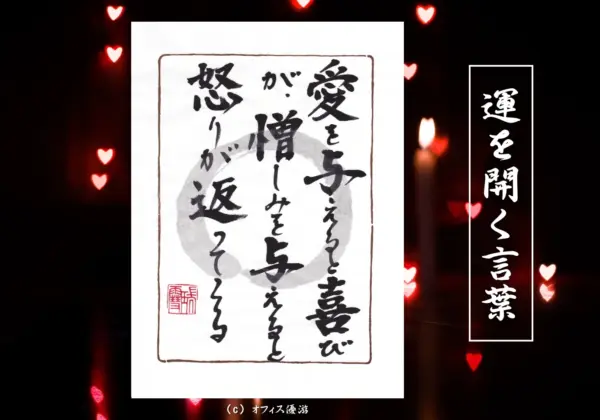 愛を与えると喜び
が、憎しみを与えると
怒りが返ってくる
運を開く言葉
(c) オフィス優游